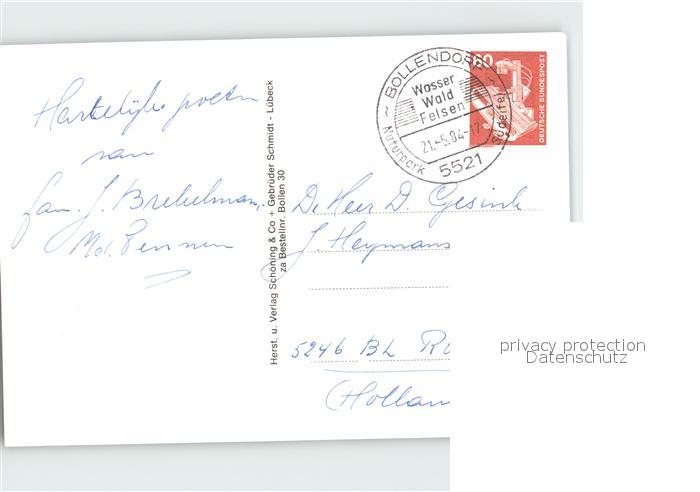 Hartelijke groeten
van
fam. J. Brekelmans.
Mol. Pennen
Herst. u. Verlag Schöning & Co + Gebrüder Schmidt - Lübeck
za Bestellnr. Bollen 30
~ BOLLENDORF ~
Wasser
Wald
Felsen
21.-5.84-17
Naturpark Südeifel
5521
60
DEUTSCHE BUNDESPOST
De Heer D. Gesink
J. Heymans
5246 BL R
(Hollan
privacy protection
Datenschutz